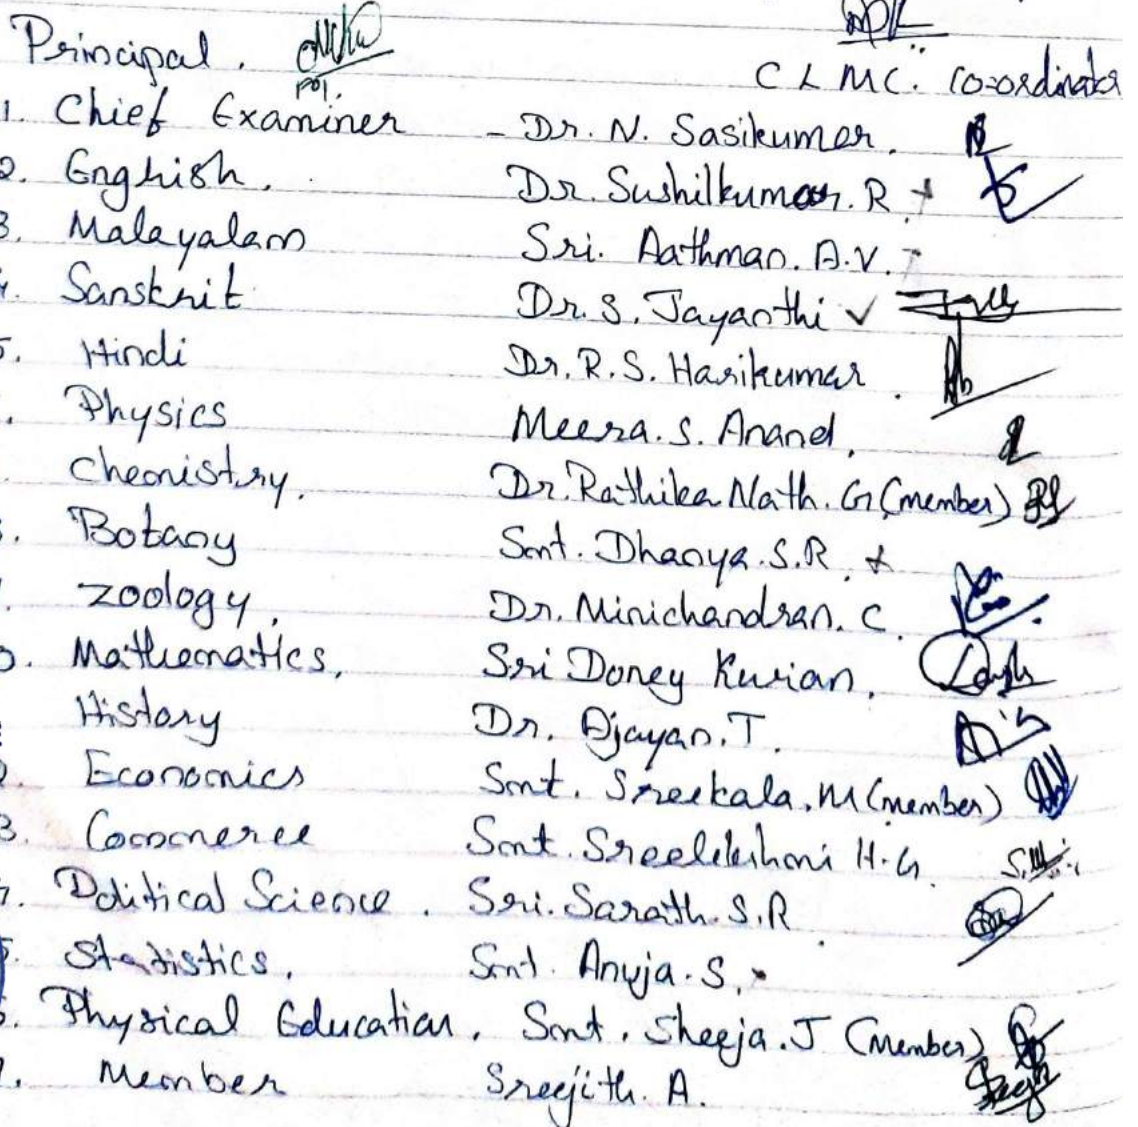 Principal.
CLMC. Co-ordinator
1. Chief Examiner - Dr. N. Sasikumar.
2. Enghish. Dr. Sushilkumar. R
3. Malayalam Sri. Aathman. A.V.
4. Sanskrit Dr. S. Jayanthi ✓
5. Hindi Dr. R.S. Harikumar
Physics Meera. S. Anand,
Chemistry. Dr. Rathika Nath. G (member)
Botany Smt. Dhanya. S.R.
Zoology. Dr. Minichandran. C.
Mathematics, Sri Doney Kurian,
History Dr. Ajayan. T.
Economics Smt. Sreekala. M (member)
3. Commerce Smt. Sreelekshmi H.G.
Political Science. Sri. Sarath. S.R
5. Statistics, Smt. Anuja. S.
Physical Education, Smt. Sheeja. J (Member)
Member Sreejith. A.